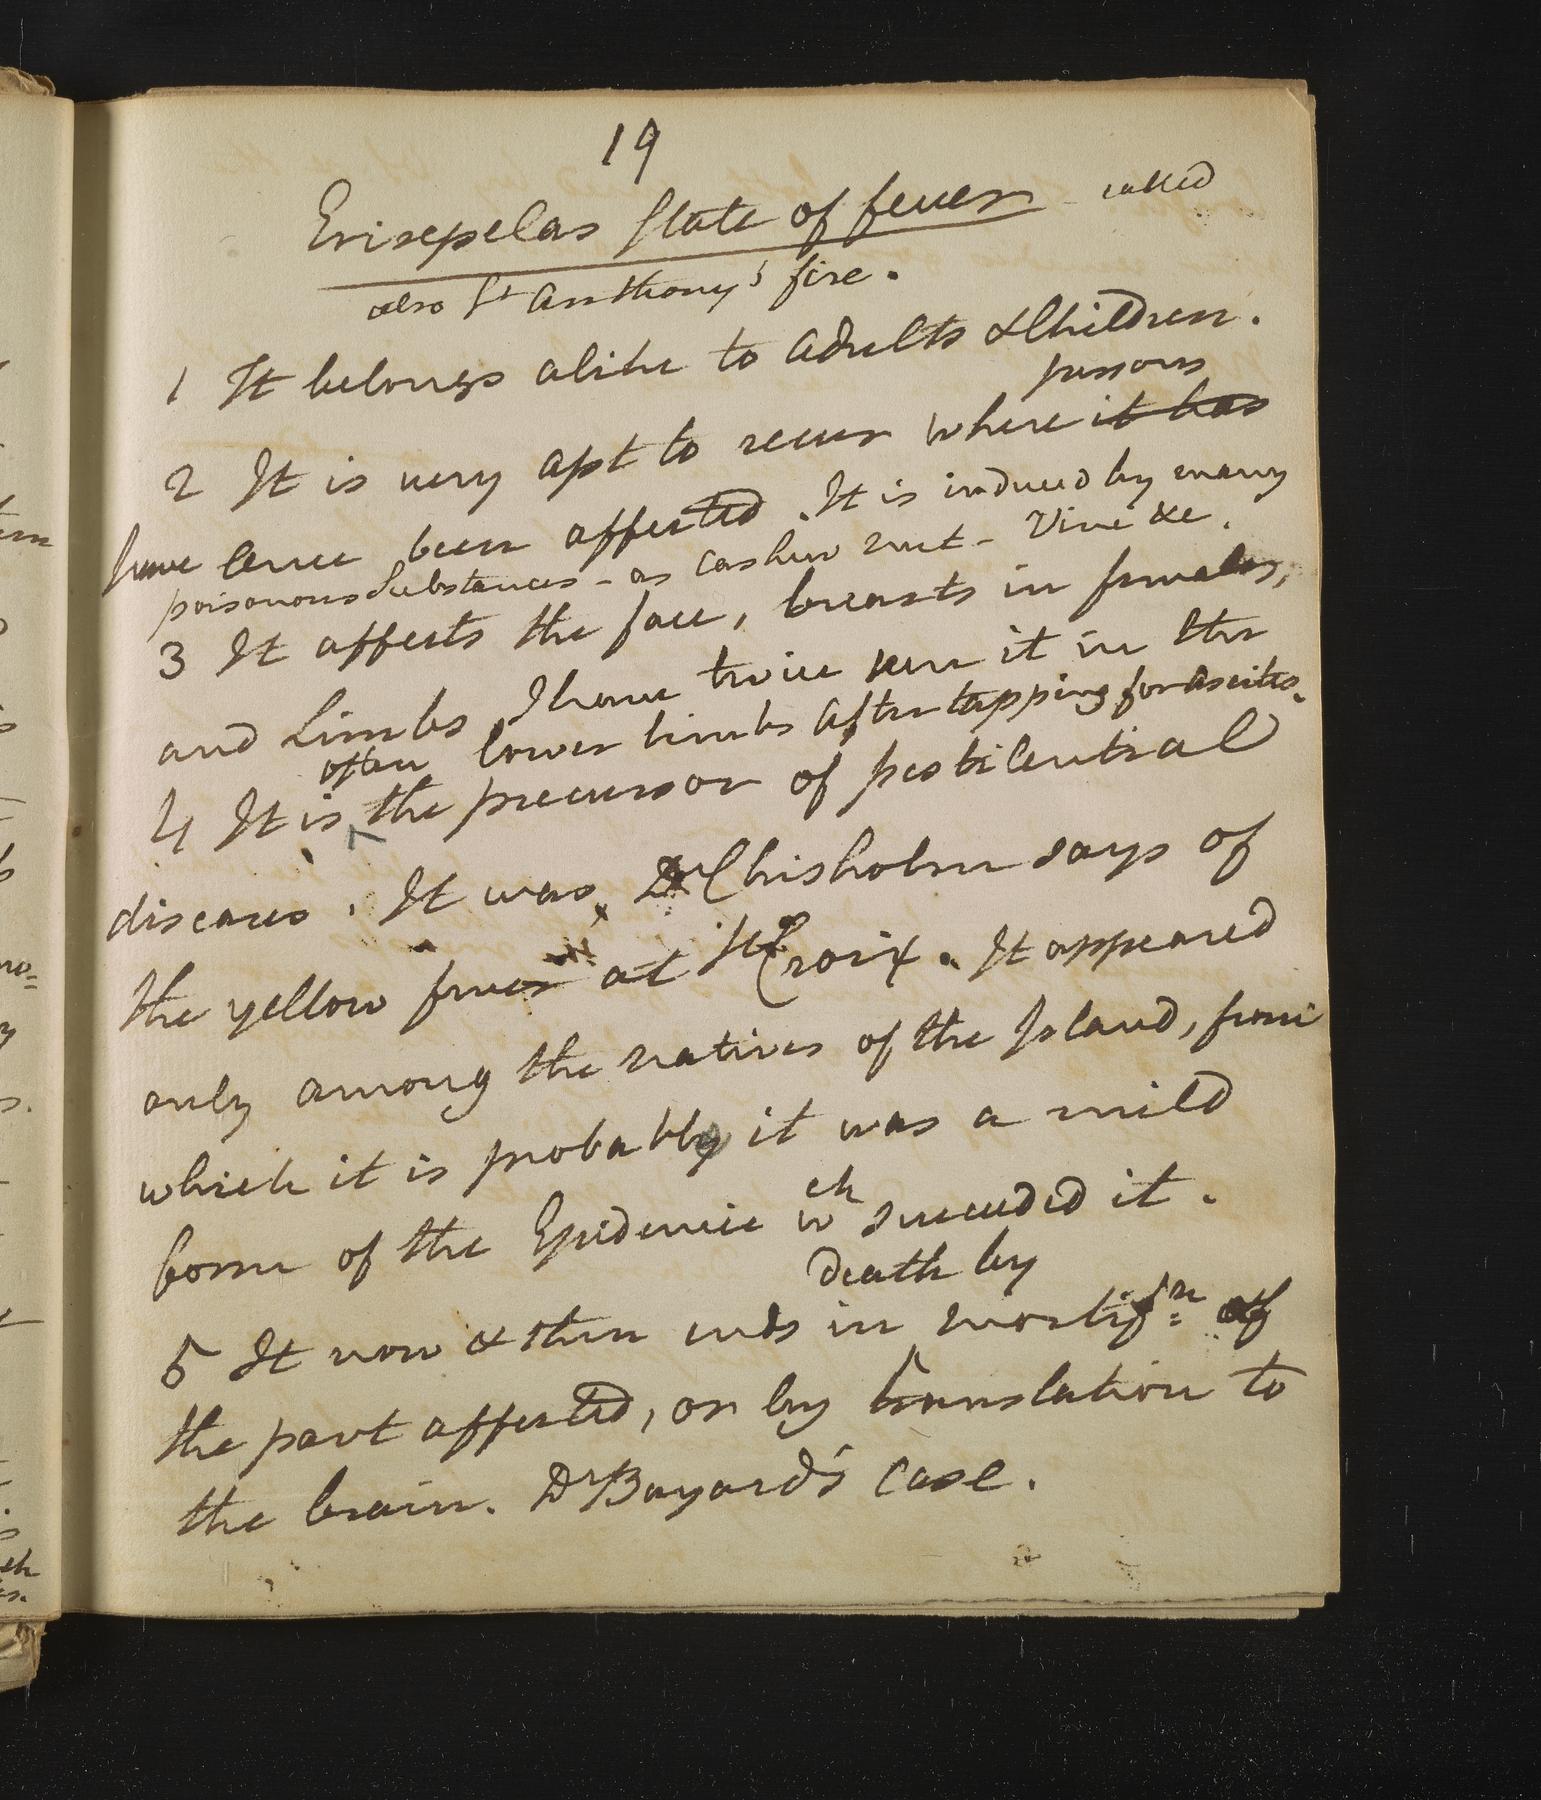 19
Erisepelas State of fever called
also St Anthony's fire.
1 It belongs alike to adults & Children.
persons
2 It is very apt to recur where it has
have once been affected. It is induced by many
poisonous substances - as cashew nut - Vine &c.
3 It affects the face, breasts in females,
and Limbs. I have twice seen it in the
lower limbs after tapping for ascites.
often
4 It is ^ the precursor of pestilential
diseases. It was Dr Chisholm says of
the yellow fever at St Croix. It appeared
only among the natives of the Island, from
which it is probably it was a mild
form of the Epidemic wch succeeded it.
death by
5 It now & then ends in mortifn: of
the part affected, or by translation to
the brain. Dr Bayard's case.